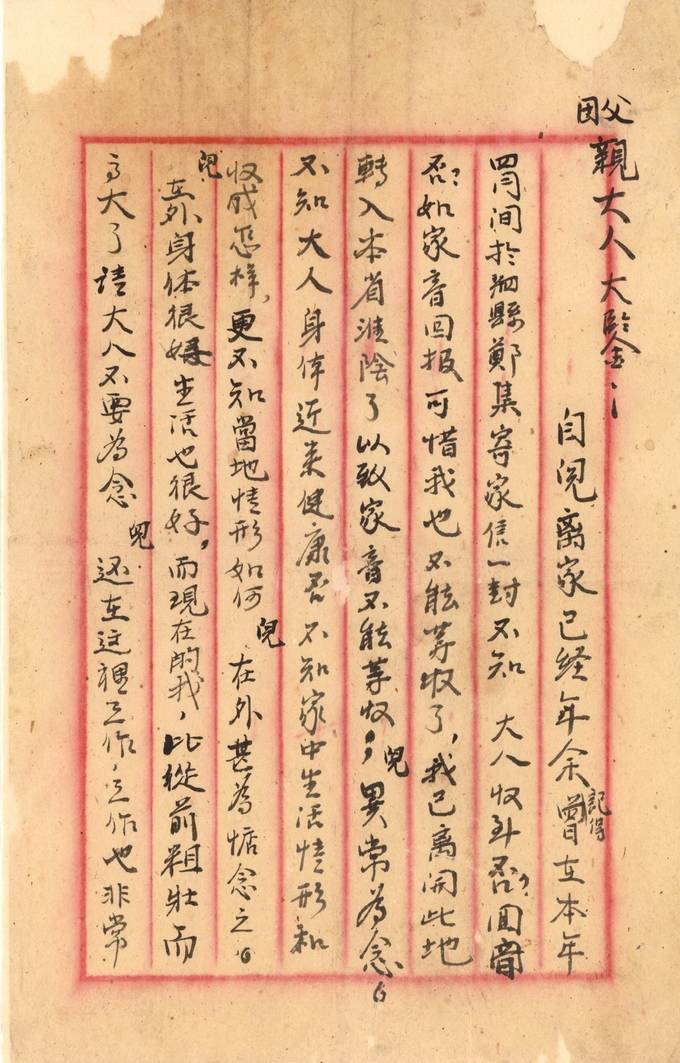 父
親大人大鑒：
自兒离家已经年余記得曾在本年
四月间於泗縣鄭集寄家信一封不知 大人收到否？回音
否？如家音回报可惜我也不能等收了，我已离開此地
轉入本省淮陰了以致家音不能等收，兒異常為念。
不知大人身体近来健康否不知家中生活情形和
收成怎样，更不知當地情形如何 兒 在外甚為惦念之。
兒在外身体很好生活也很好，而現在的我，比從前粗壮而
高大了请大人不要為念 兒 还在这裡工作，工作也非常